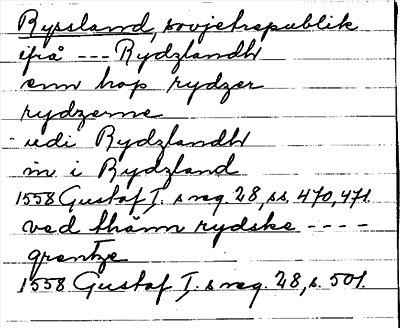 Ryssland, sovjetrepublik
ifrå --- Rydzlandh
enn hop rydzer
rydzerne
- udi Rydzlandh
in i Rydzland
1558 Gustaf I. s reg. 28, ss. 470, 471.
ved thänn rydske ----
grentze
1558 Gustaf I. s reg. 28, s. 501.